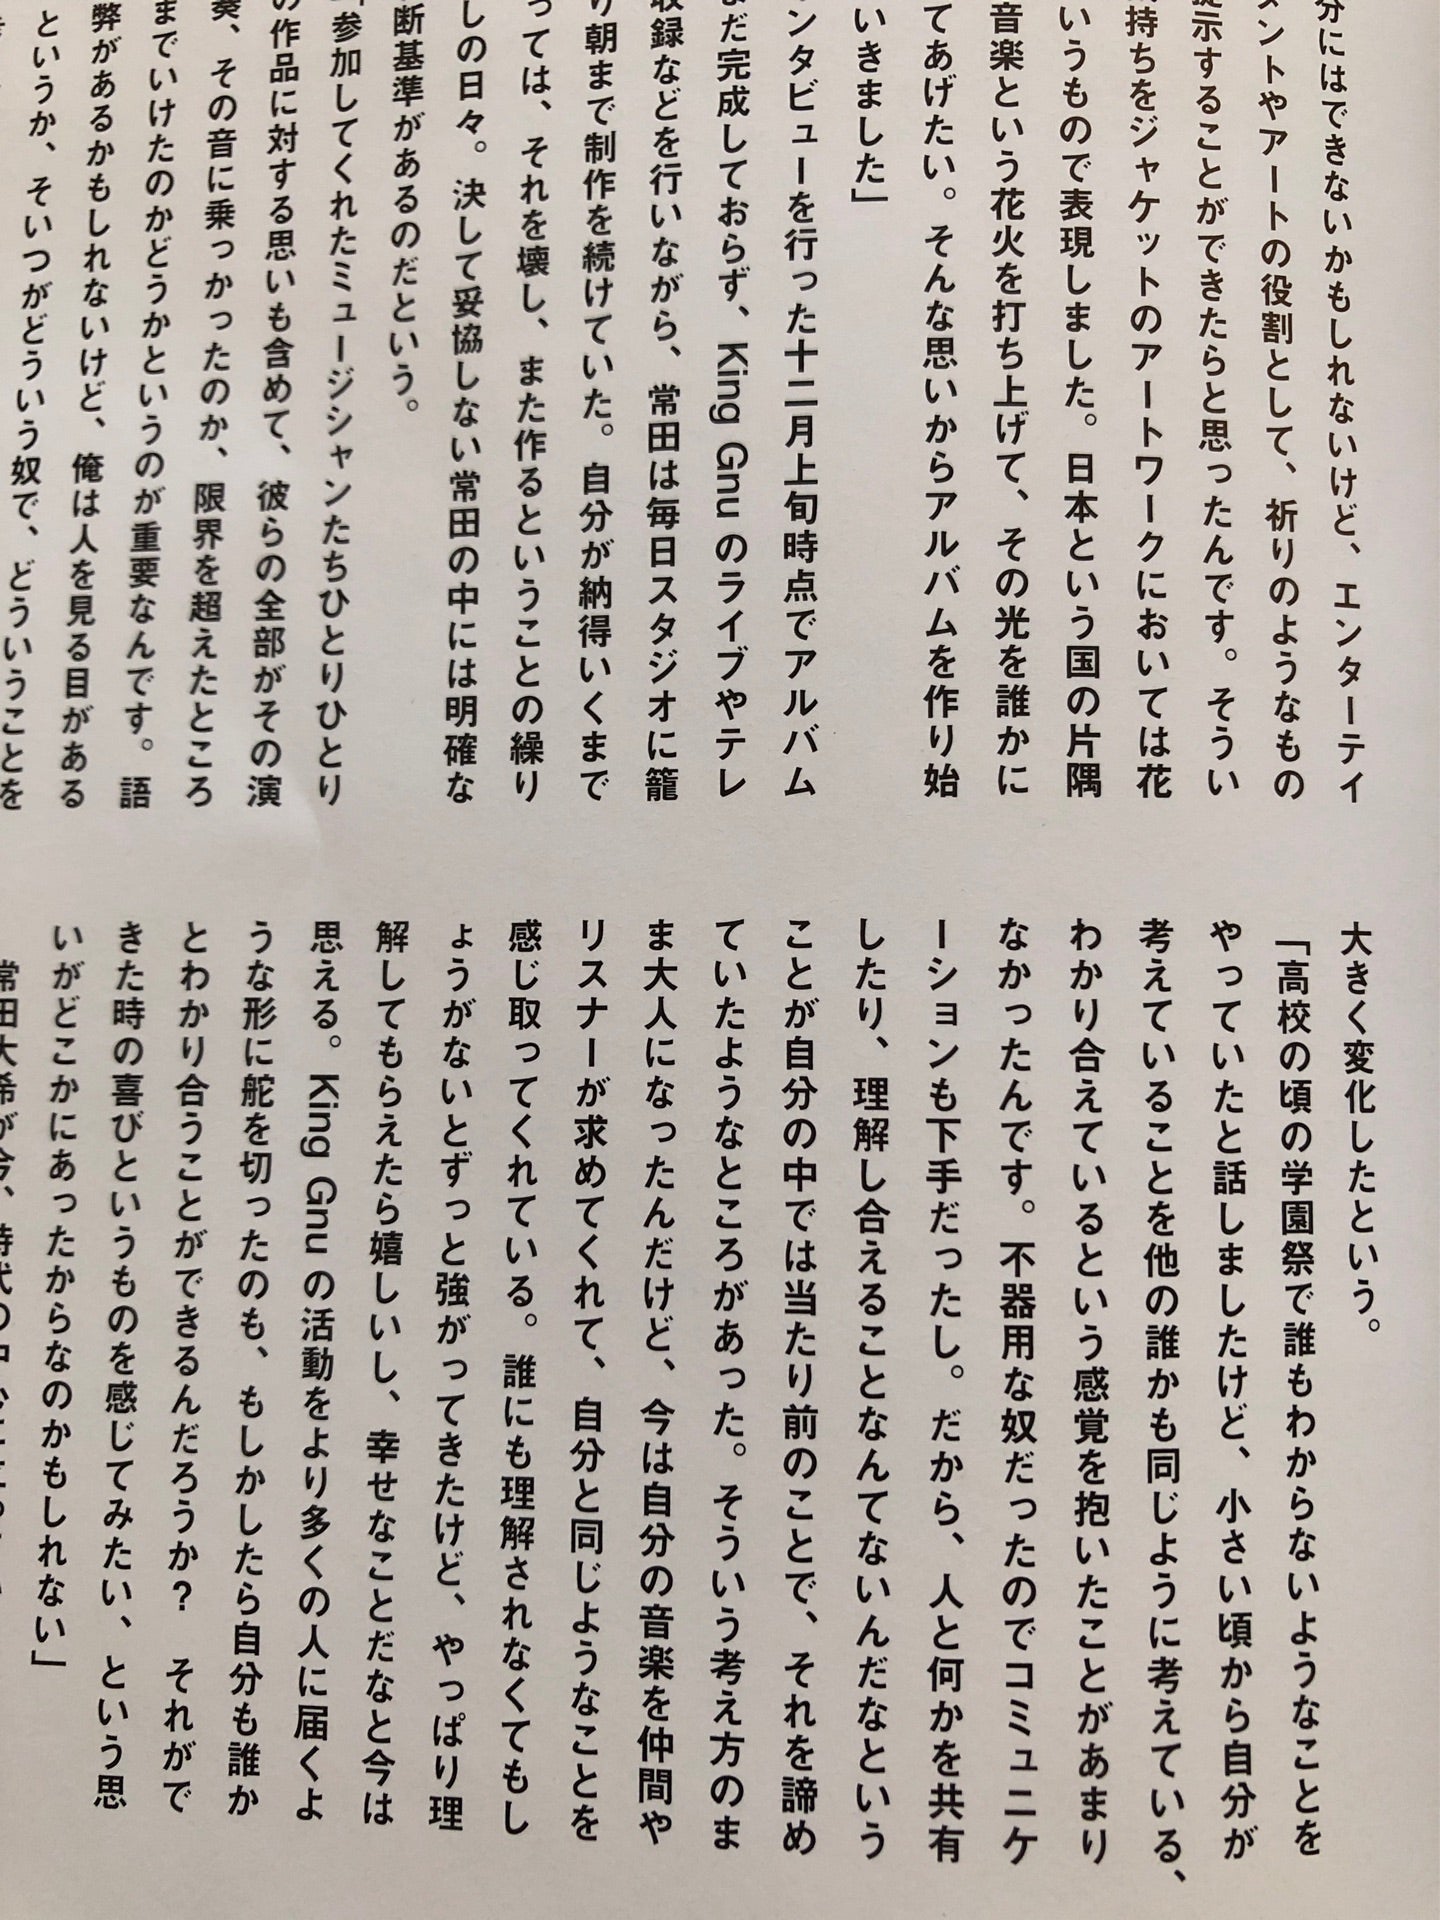 分にはできないかもしれないけど、エンターテイ
メントやアートの役割として、祈りのようなもの
提示することができたらと思ったんです。そうい
持ちをジャケットのアートワークにおいては花
いうもので表現しました。日本という国の片隅
音楽という花火を打ち上げて、その光を誰かに
てあげたい。そんな思いからアルバムを作り始
いきました」
ンタビューを行った十二月上旬時点でアルバム
まだ完成しておらず、King Gnu のライブやテレ
収録などを行いながら、常田は毎日スタジオに籠
り朝まで制作を続けていた。自分が納得いくまで
っては、それを壊し、また作るということの繰り
しの日々。決して妥協しない常田の中には明確な
断基準があるのだという。
「参加してくれたミュージシャンたちひとりひとり
の作品に対する思いも含めて、彼らの全部がその演
奏、その音に乗っかったのか、限界を超えたところ
までいけたのかどうかというのが重要なんです。語
弊があるかもしれないけど、俺は人を見る目がある
というか、そいつがどういう奴で、どういうことを
大きく変化したという。
「高校の頃の学園祭で誰もわからないようなことを
やっていたと話しましたけど、小さい頃から自分が
考えていることを他の誰かも同じように考えている、
わかり合えているという感覚を抱いたことがあまり
なかったんです。不器用な奴だったのでコミュニケ
ーションも下手だったし。だから、人と何かを共有
したり、理解し合えることなんてないんだなという
ことが自分の中では当たり前のことで、それを諦め
ていたようなところがあった。そういう考え方のま
ま大人になったんだけど、今は自分の音楽を仲間や
リスナーが求めてくれて、自分と同じようなことを
感じ取ってくれている。誰にも理解されなくてもし
ょうがないとずっと強がってきたけど、やっぱり理
解してもらえたら嬉しいし、幸せなことだなと今は
思える。King Gnu の活動をより多くの人に届くよ
うな形に舵を切ったのも、もしかしたら自分も誰か
とわかり合うことができるんだろうか? それがで
きた時の喜びというものを感じてみたい、という思
いがどこかにあったからなのかもしれない」
常田大希が今、時代の